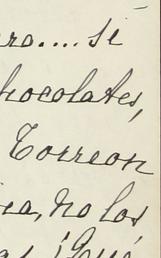 ro.... si
hocolates,
Torreon
ea, no los
as ¡Qué